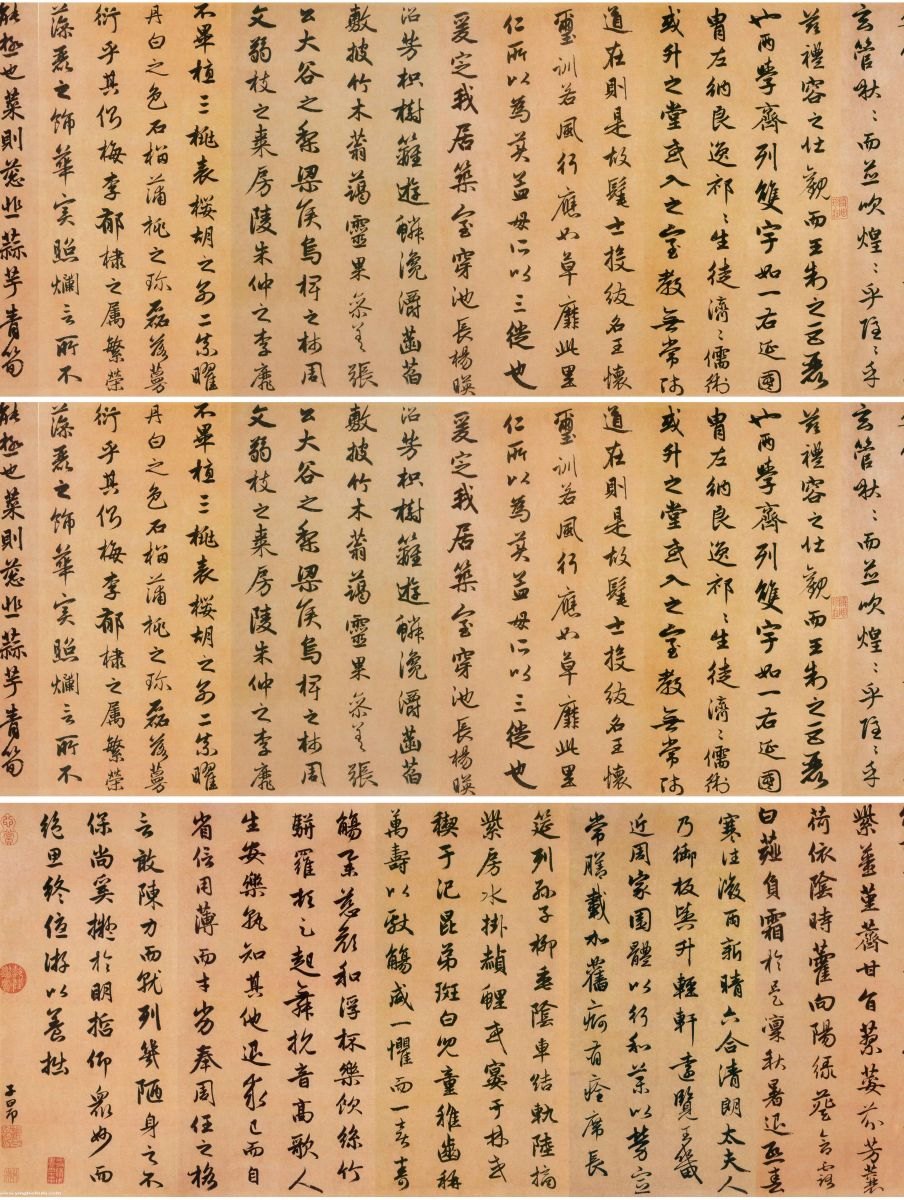 玄管啾々而並吹煌々乎隱々乎
茲禮容之壯觀而王制之巨麗
也兩學齊列雙宇如一右延國
胄左納良逸祁々生徒濟々儒術
或升之堂或入之室教無常師
道在則是故髦士投紱名王懷
璽訓若風行應如草靡此里
仁所以為美孟母所以三徙也
爰定我居築室穿池長楊暎
沼芳枳樹籬遊鱗瀺灂菡萏
敷披竹木蓊藹靈果參差張
公大谷之梨梁侯烏椑之柿周
文弱枝之棗房陵朱仲之李靡
不畢植三桃表櫻胡之別二柰曜
丹白之色石榴蒲桃之珍磊落蔓
衍乎其側梅李郁棣之属繁榮
藻麗之飾華實照爛言所不
能極也菜則蔥韭蒜芋青筍
玄管啾々而並吹煌々乎隱々乎
茲禮容之壯觀而王制之巨麗
也兩學齊列雙宇如一右延國
胄左納良逸祁々生徒濟々儒術
或升之堂或入之室教無常師
道在則是故髦士投紱名王懷
璽訓若風行應如草靡此里
仁所以為美孟母所以三徙也
爰定我居築室穿池長楊暎
沼芳枳樹籬遊鱗瀺灂菡萏
敷披竹木蓊藹靈果參差張
公大谷之梨梁侯烏椑之柿周
文弱枝之棗房陵朱仲之李靡
不畢植三桃表櫻胡之別二柰曜
丹白之色石榴蒲桃之珍磊落蔓
衍乎其側梅李郁棣之属繁榮
藻麗之飾華實照爛言所不
能極也菜則蔥韭蒜芋青筍
紫薑堇薺甘旨蓼荽芬芳蘘
荷依陰時藿向陽綠葵含露
白薤負霜於是凜秋暑退熙春
寒往微雨新晴六合清朗太夫人
乃御板輿升輕軒遠覽王畿
近周家園體以行和藥以勞宣
常膳載加舊痾有痊席長
筵列孫子柳垂陰車結軌陸摘
紫房水掛赬鯉或宴于林或
禊于汜昆弟斑白兒童稚齒稱
萬壽以獻觴咸一懼而一喜壽
觴舉慈顏和浮杯樂飲絲竹
駢羅頓足起舞抗音高歌人
生安樂孰知其他退求己而自
省信用薄而才劣奉周任之格
言敢陳力而就列幾陋身之不
保尚奚擬於明哲仰眾妙而
絕思終優游以養拙
子昂